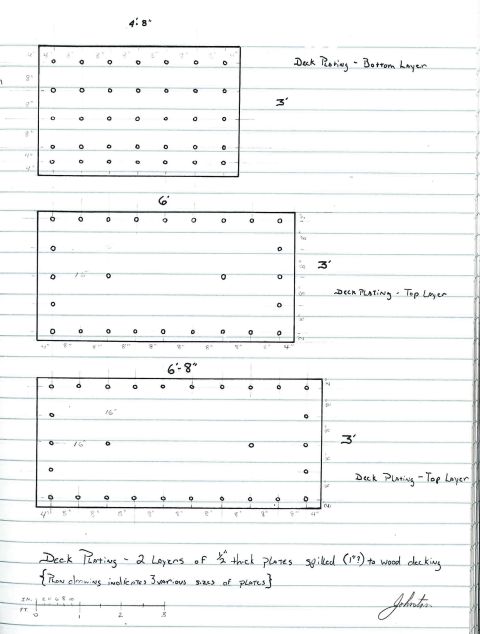 4'·8"
Deck Plating - Bottom Layer
3'
6'
3'
Deck Plating - Top Layer
6'-8"
16"
16"
3'
Deck Plating - Top Layer
Deck Plating - 2 Layers of ½" thick plates spiked (1"?) to wood decking
{Plan drawing indicates 3 various sizes of plates}
IN. 2 4 6 8 10
FT. 0 1 2 3
Johnston